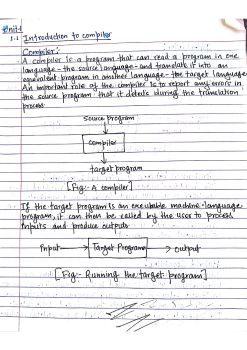 Unit-1
1.1 Introduction to compiler
Compiler:
A compiler is a program that can read a program in one
language - the source language - and translate it into an
equivalent program in another language - the target language
An important role of the compiler is to report any errors in
the source program that it detects during the translation
process
source program
compiler
target program
[Fig:- A compiler]
If the target program is an executable machine-language
program, it can then be called by the user to process
inputs and produce outputs
Input
Target Program
Output
[Fig:- Running the target program]